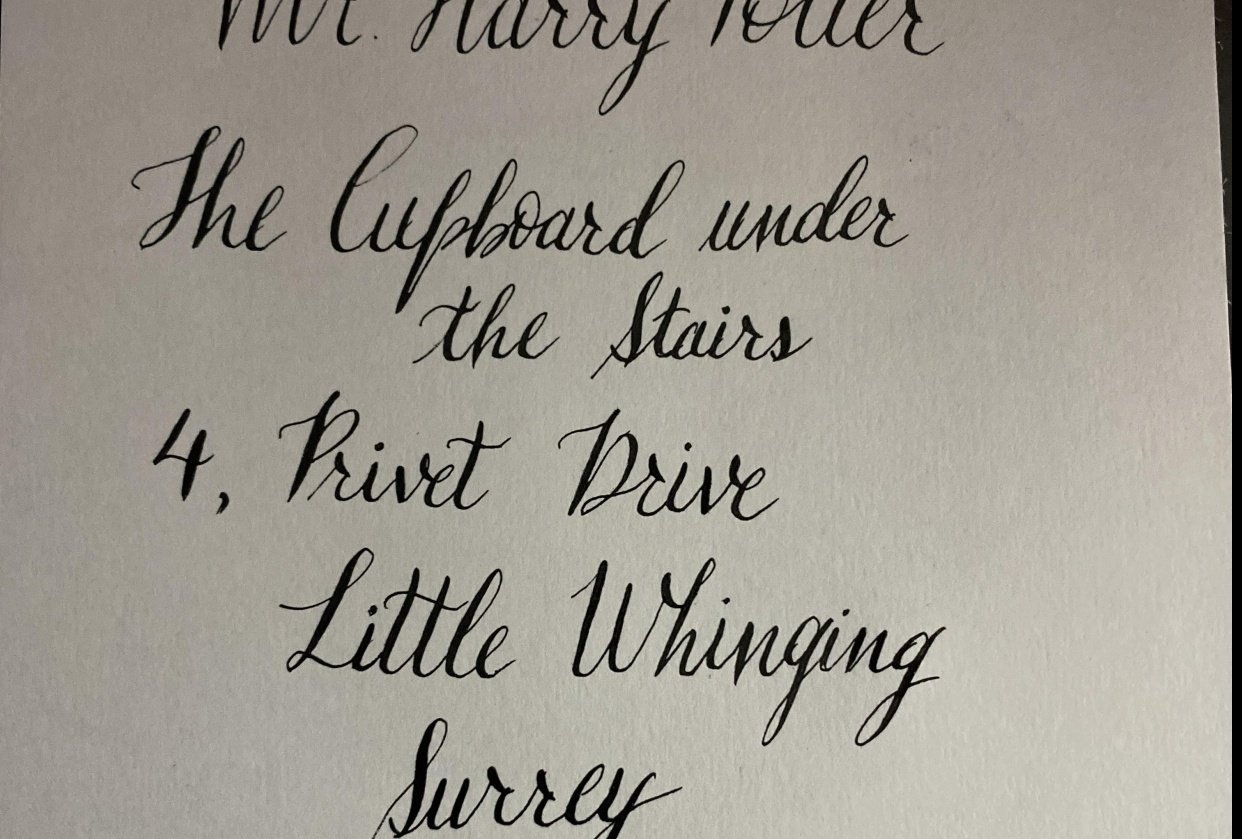 Mr. Harry Potter
The Cupboard under
the Stairs
4, Privet Drive
Little Whinging
Surrey